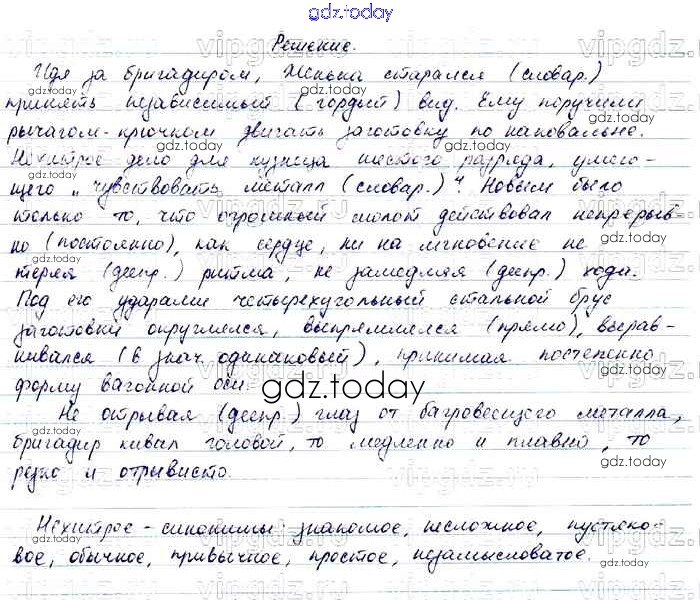 gdz.today
Решение.
Идя за бригадиром, Женька старался (словар.)
принять независимый (гордый) вид. Ему поручили
рычагом-крючком двигать заготовку по наковальне.
Нехитрое дело для кузнеца шестого разряда, умею-
щего „чувствовать металл (словар.)“! Новым было
только то, что огромный молот действовал непрерыв-
но (постоянно), как сердце, ни на мгновение не
теряя (деепр.) ритма, не замедляя (деепр.) хода.
Под его ударами четырехугольный стальной брус
заготовки округлялся, выпрямлялся (прямо), вырав-
нивался (в знач. одинаковый), принимая постепенно
форму вагонной оси.
gdz.today
Не отрывая (деепр.) глаз от багровеющего металла,
бригадир кивал головой, то медленно и плавно, то
резко и отрывисто.
Нехитрое - синонимы: знакомое, несложное, пустяко-
вое, обычное, привычное, простое, незамысловатое.